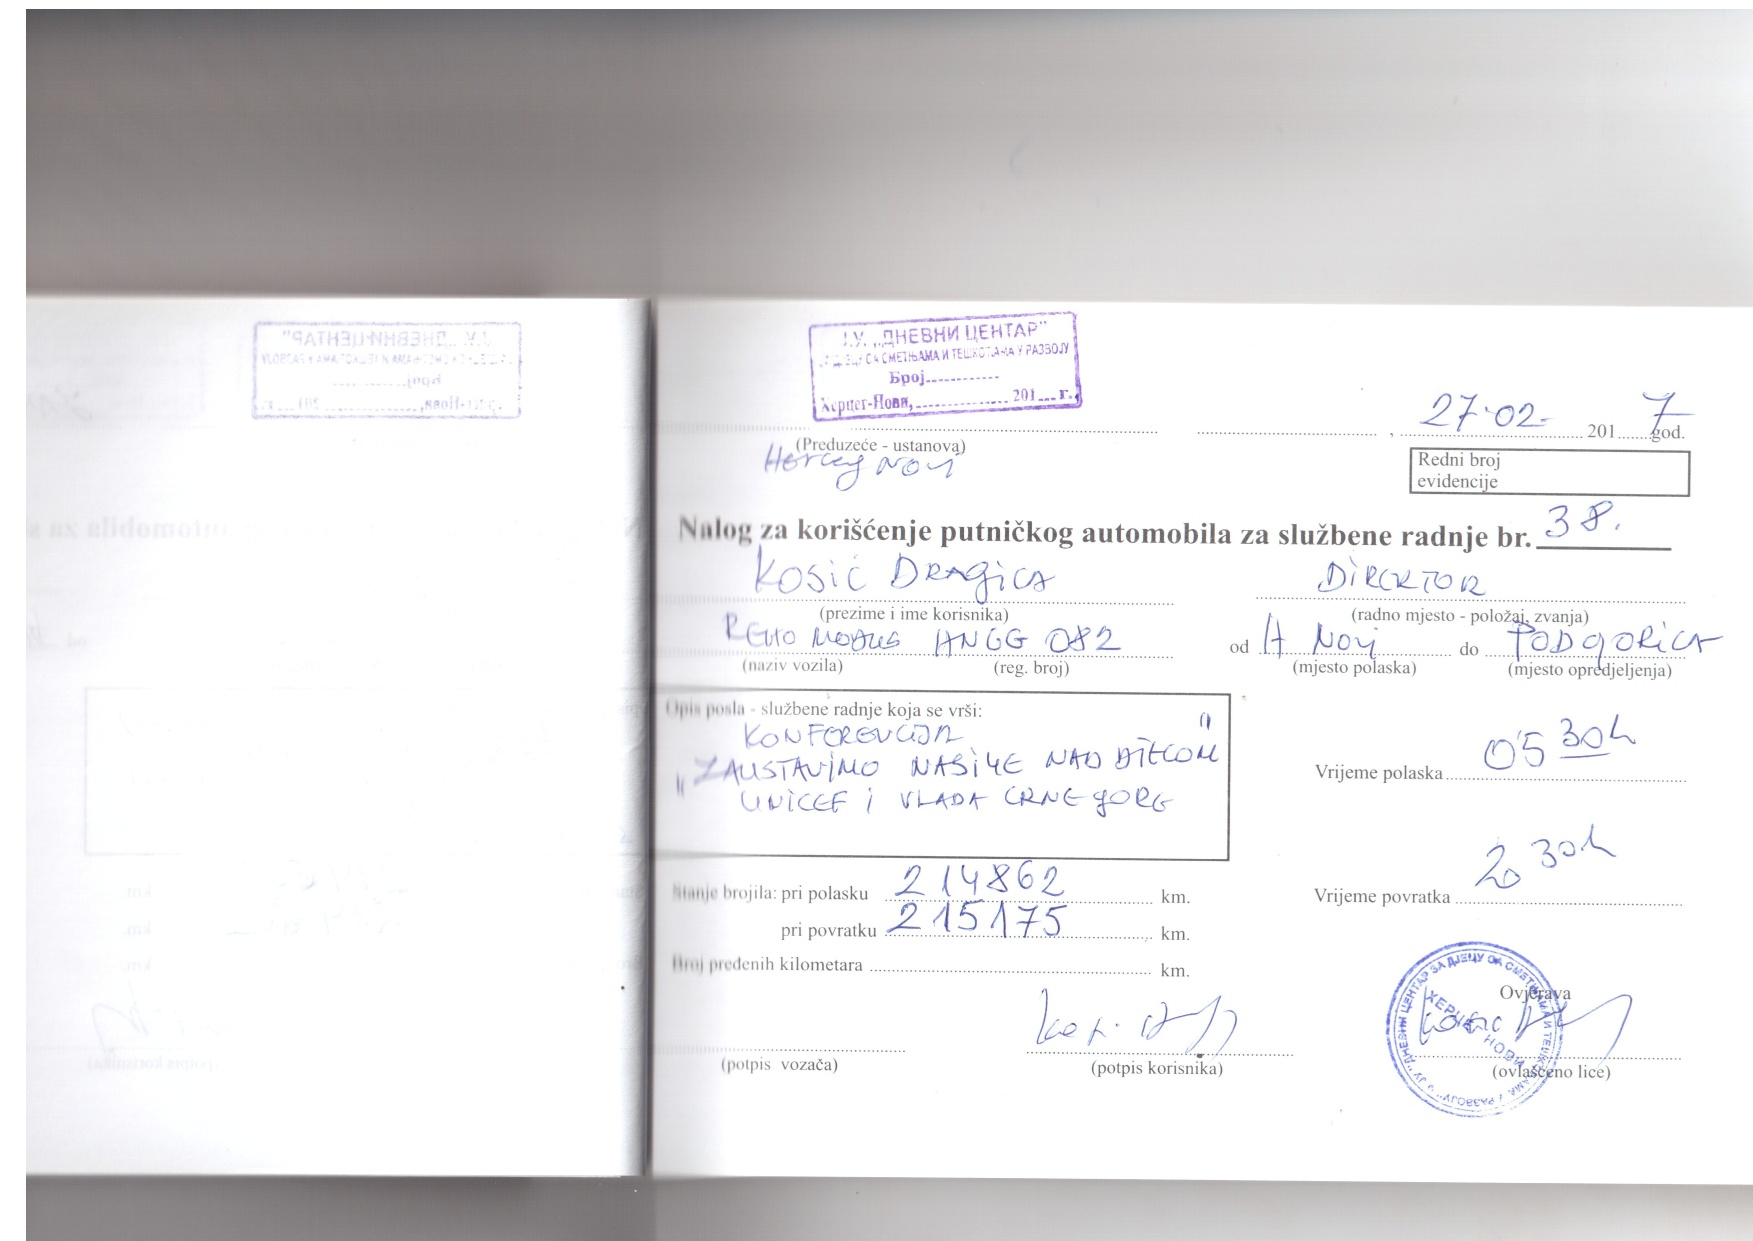 Ј.У. „ДНЕВНИ ЦЕНТАР"
СА СМЕТЊАМА И ТЕШКОЋАМА У РАЗВОЈУ
Број............
Херцег-Нови, ................ 201....г.
27.02. 2017 god.
(Preduzeće - ustanova)
Herceg Novi
Redni broj
evidencije
Nalog za korišćenje putničkog automobila za službene radnje br. 38.
KOSIĆ DRAGICA DIREKTOR
(prezime i ime korisnika) (radno mjesto - položaj, zvanja)
RENO MODUS HNGG 082 od H Novi do PODGORICA
(naziv vozila) (reg. broj) (mjesto polaska) (mjesto opredjeljenja)
Opis posla - službene radnje koja se vrši:
KONFERENCIJA "
" ZAUSTAVIMO NASILJE NAD DJECOM
UNICEF I VLADA CRNE GORE
Vrijeme polaska 05 30h
Stanje brojila: pri polasku 214862 km.
Vrijeme povratka 20 30h
pri povratku 215175 km.
Broj pređenih kilometara km.
Ovjerava
ХЕРЦЕГ НОВИ
(potpis vozača) (potpis korisnika) (ovlašćeno lice)